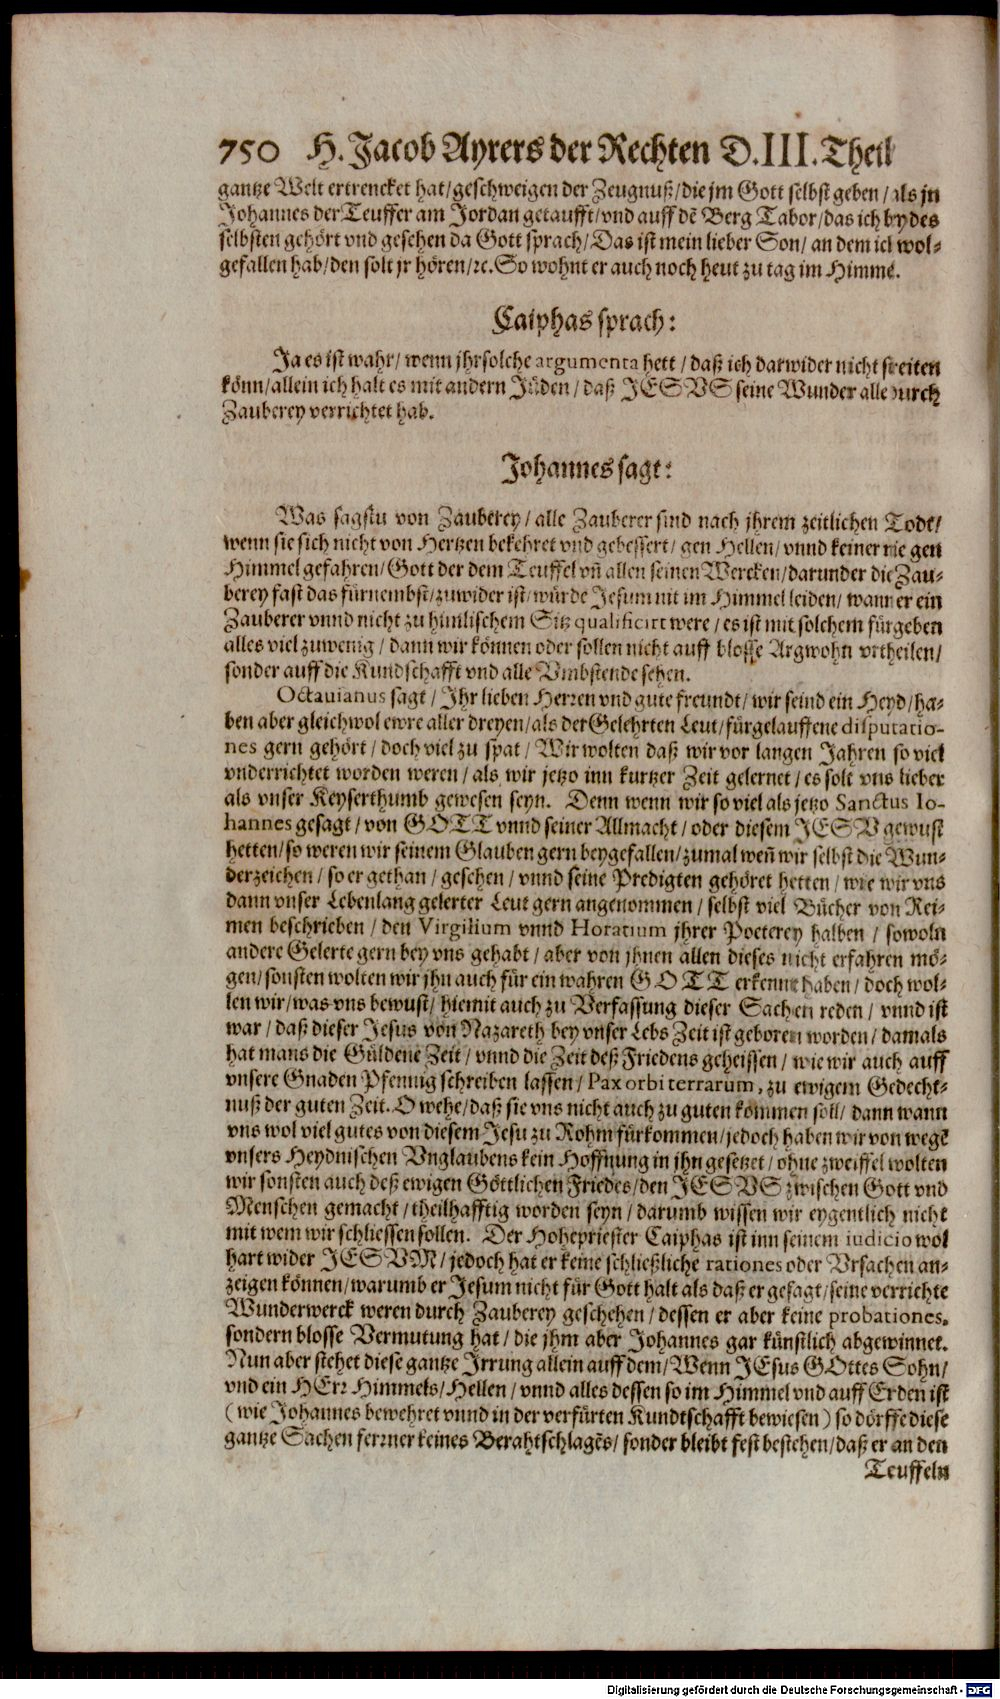 750 H. Jacob Ayrers der Rechten D. III. Theil
gantze Welt ertrencket hat/geschweigen der Zeugnuß/die jm Gott selbst geben/als jn
Johannes der Teuffer am Jordan getaufft/vnd auff dẽ Berg Tabor/das ich bydes
selbsten gehört vnd gesehen da Gott sprach/Das ist mein lieber Son/an dem ich wol-
gefallen hab/den solt jr hören/ꝛc. So wohnt er auch noch heut zu tag im Himmel.
Caiphas sprach:
Ja es ist wahr/wenn jhr solche argumenta hett/daß ich darwider nicht streiten
könn/allein ich halt es mit andern Jüden/daß JESVS seine Wunder alle durch
Zauberey verrichtet hab.
Johannes sagt:
Was sagstu von Zauberey/alle Zauberer sind nach jhrem zeitlichen Todt/
wenn sie sich nicht von Hertzen bekehret vnd gebessert/gen Hellen/vnnd keiner nie gen
Himmel gefahren/Gott der dem Teuffel vñ allen seinen Wercken/darunder die Zau-
berey fast das fürnembst/zuwider ist/würde Jesum nit im Himmel leiden/wann er ein
Zauberer vnnd nicht zu himlischem Sitz qualificirt were/es ist mit solchem fürgeben
alles viel zuwenig/dann wir können oder sollen nicht auff blosse Argwohn vrtheilen/
sonder auff die Kundschafft vnd alle Vmbstende sehen.
Octauianus sagt/Ihr lieben Herren vnd gute freundt/wir seind ein Heyd/ha-
ben aber gleichwol ewre aller dreyen/als der Gelehrten Leut/fürgelauffene disputatio-
nes gern gehört/doch viel zu spat/Wir wolten daß wir vor langen Jahren so viel
vnderrichtet worden weren/als wir jetzo inn kurtzer Zeit gelernet/es solt vns lieber
als vnser Keyserthumb gewesen seyn. Denn wenn wir so viel als jetzo Sanctus Io-
hannes gesagt/von GOTT vnnd seiner Allmacht/oder diesem JESV gewust
hetten/so weren wir seinem Glauben gern beygefallen/zumal weñ wir selbst die Wun-
derzeichen/so er gethan/gesehen/vnnd seine Predigten gehöret hetten/wie wir vns
dann vnser Lebenlang gelerter Leut gern angenommen/selbst viel Bücher von Rei-
men beschrieben/den Virgilium vnnd Horatium jhrer Poeterey halben/sowoln
andere Gelerte gern bey vns gehabt/aber von jhnen allen dieses nicht erfahren mö-
gen/sonsten wolten wir jhn auch für ein wahren GOTT erkennt haben/doch wol-
len wir/was vns bewust/hiemit auch zu Verfassung dieser Sachen reden/vnnd ist
war/daß dieser Jesus von Nazareth bey vnser Lebs Zeit ist geboren worden/damals
hat mans die Güldene Zeit/vnnd die Zeit deß Friedens geheissen/wie wir auch auff
vnsere Gnaden Pfennig schreiben lassen/Pax orbi terrarum, zu ewigem Gedecht-
nuß der guten Zeit. O wehe/daß sie vns nicht auch zu guten kommen soll/dann wann
vns wol viel gutes von diesem Jesu zu Rohm fürkommen/jedoch haben wir von wegẽ
vnsers Heydnischen Vnglaubens kein Hoffnung in jhn gesetzet/ohne zweiffel wolten
wir sonsten auch deß ewigen Göttlichen Friedes/den JESVS zwischen Gott vnd
Menschen gemacht/theilhafftig worden seyn/darumb wissen wir eygentlich nicht
mit wem wir schliessen sollen. Der Hohepriester Caiphas ist inn seinem iudicio wol
hart wider JESVM/jedoch hat er keine schließliche rationes oder Vrsachen an-
zeigen können/warumb er Jesum nicht für Gott halt als daß er gesagt/seine verrichte
Wunderwerck weren durch Zauberey geschehen/dessen er aber keine probationes,
sondern blosse Vermutung hat/die jhm aber Johannes gar künstlich abgewinnet.
Nun aber stehet diese gantze Irrung allein auff dem/Wenn JEsus GOttes Sohn/
vnd ein HErꝛ Himmels/Hellen/vnnd alles dessen so im Himmel vnd auff Erden ist
(wie Johannes bewehret vnnd in der verfürten Kundtschafft bewiesen) so dörffe diese
gantze Sachen ferrner keines Berahtschlagẽs/sonder bleibt fest bestehen/daß er an den
Teuffeln
Digitalisierung gefördert durch die Deutsche Forschungsgemeinschaft - DFG